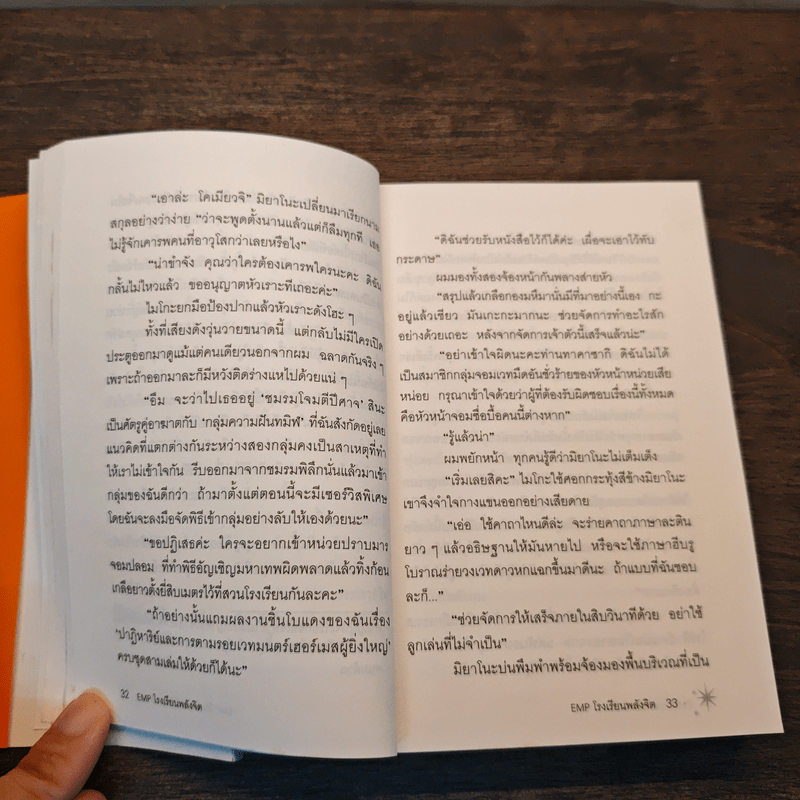 “เอาล่ะ โคเมียวจิ” มิยาโนะเปลี่ยนมาเรียกนาม
สกุลอย่างว่าง่าย “ว่าจะพูดตั้งนานแล้วแต่ก็ลืมทุกที เธอ
ไม่รู้จักเคารพคนที่อาวุโสกว่าเลยหรือไง”
“น่าขำจัง คุณว่าใครต้องเคารพใครนะคะ ดิฉัน
กลั้นไม่ไหวแล้ว ขออนุญาตหัวเราะทีเถอะค่ะ”
ไมโกะยกมือป้องปากแล้วหัวเราะดังโฮะ ๆ
ทั้งที่เสียงดังวุ่นวายขนาดนี้ แต่กลับไม่มีใครเปิด
ประตูออกมาดูแม้แต่คนเดียวนอกจากผม ฉลาดกันจริง ๆ
เพราะถ้าออกมาละก็มีหวังติดร่างแหไปด้วยแน่ ๆ
“อืม จะว่าไปเธออยู่ ‘ชมรมโจมตีปีศาจ’ สินะ
เป็นศัตรูคู่อาฆาตกับ ‘กลุ่มความฝันทมิฬ’ ที่ฉันสังกัดอยู่เลย
แนวคิดที่แตกต่างกันระหว่างสองกลุ่มคงเป็นสาเหตุที่ทำ
ให้เราไม่เข้าใจกัน รีบออกมาจากชมรมพิลึกนั่นแล้วมาเข้า
กลุ่มของฉันดีกว่า ถ้ามาตั้งแต่ตอนนี้จะมีเซอร์วิสพิเศษ
โดยฉันจะลงมือจัดพิธีเข้ากลุ่มอย่างลับให้เองด้วยนะ”
“ขอปฏิเสธค่ะ ใครจะอยากเข้าหน่วยปราบมาร
จอมปลอม ที่ทำพิธีอัญเชิญมหาเทพผิดพลาดแล้วทิ้งก้อน
เกลือยาวตั้งยี่สิบเมตรไว้ที่สวนโรงเรียนกันละคะ”
“ถ้าอย่างนั้นแถมผลงานชิ้นโบแดงของฉันเรื่อง
‘ปาฏิหาริย์และการตามรอยเวทมนตร์เฮอร์เมสผู้ยิ่งใหญ่’
ครบชุดสามเล่มให้ด้วยก็ได้นะ”
32 EMP โรงเรียนพลังจิต
“ดิฉันช่วยรับหนังสือไว้ก็ได้ค่ะ เผื่อจะเอาไว้ทับ
กระดาษ”
ผมมองทั้งสองจ้องหน้ากันพลางส่ายหัว
“สรุปแล้วเกลือกองมหึมานั่นมีที่มาอย่างนี้เอง กะ
อยู่แล้วเชียว มันเกะกะมากนะ ช่วยจัดการทำอะไรสัก
อย่างด้วยเถอะ หลังจากจัดการเจ้าตัวนี้เสร็จแล้วน่ะ”
“อย่าเข้าใจผิดนะคะท่านทาคาซากิ ดิฉันไม่ได้
เป็นสมาชิกกลุ่มจอมเวทมืดอันชั่วร้ายของหัวหน้าหน่วยเสีย
หน่อย กรุณาเข้าใจด้วยว่าผู้ที่ต้องรับผิดชอบเรื่องนี้ทั้งหมด
คือหัวหน้าจอมซื่อบื้อคนนี้ต่างหาก”
“รู้แล้วน่า”
ผมพยักหน้า ทุกคนรู้ดีว่ามิยาโนะไม่เต็มเต็ง
“เริ่มเลยสิคะ” ไมโกะใช้ศอกกระทุ้งสีข้างมิยาโนะ
เขาจึงจำใจกางแขนออกอย่างเสียดาย
“เอ่อ ใช้คาถาไหนดีล่ะ จะร่ายคาถาภาษาละติน
ยาว ๆ แล้วอธิษฐานให้มันหายไป หรือจะใช้ภาษาฮีบรู
โบราณร่ายวงเวทดาวหกแฉกขึ้นมาดีนะ ถ้าแบบที่ฉันชอบ
ละก็...”
“ช่วยจัดการให้เสร็จภายในสิบวินาทีด้วย อย่าใช้
ลูกเล่นที่ไม่จำเป็น”
มิยาโนะบ่นพึมพำพร้อมจ้องมองพื้นบริเวณที่เป็น
EMP โรงเรียนพลังจิต 33